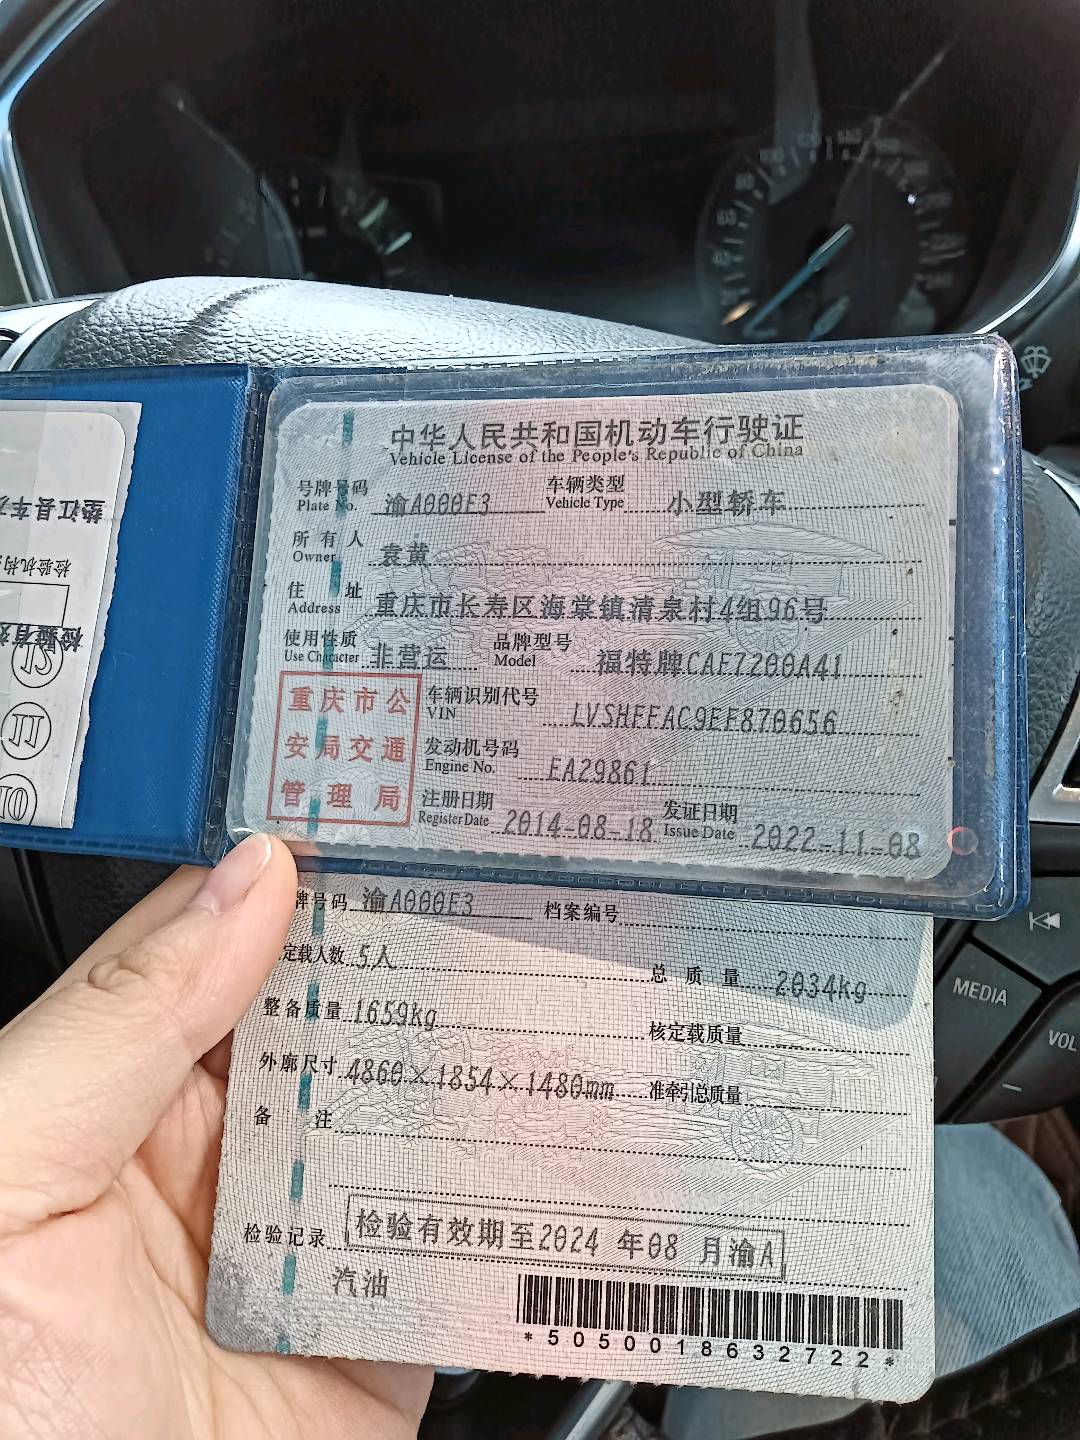 中华人民共和国机动车行驶证
Vehicle License of the People's Republic of China
号牌号码 渝A000E3 车辆类型 小型轿车
Plate No. Vehicle Type
所有人
Owner
住址 重庆市长寿区海棠镇清泉村4组96号
Address
使用性质 非营运 品牌型号 福特牌CAF7200A41
Use Character Model
重庆市公
安局交通
管理局
车辆识别代号 LVSHFFAC9EF870656
VIN
发动机号码 EA29861
Engine No.
注册日期 2014-08-18 发证日期 2022-11-08
Register Date Issue Date
牌号码 渝A000E3 档案编号
定载人数 5人 总质量 2034kg
整备质量 1659kg 核定载质量
外廓尺寸 4860×1854×1480mm 准牵引总质量
备注
检验记录 检验有效期至2024年08月渝A
汽油
*5050018632722*
垫江县车
检验机构
检验有效
12
11
10
MEDIA
VOL